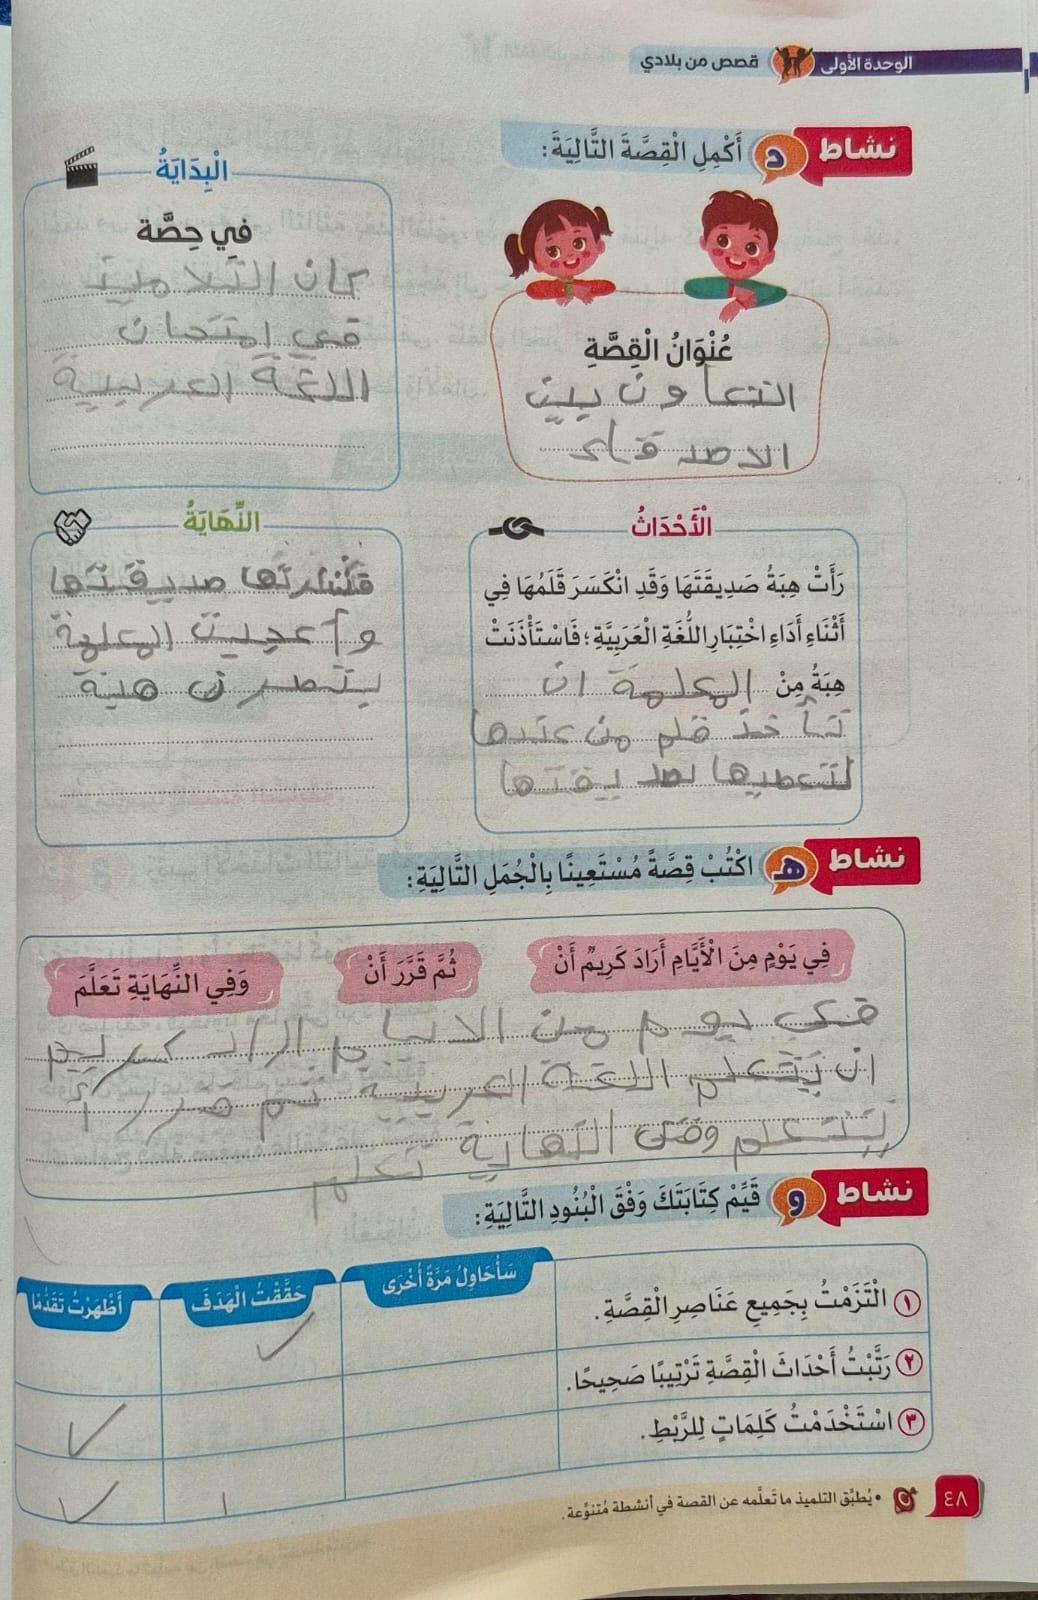 الوحدة الأولى قصص من بلادي
نشاط د أَكْمِلِ الْقِصَّةَ التَّالِيَةَ:
عُنْوَانُ الْقِصَّةِ
التعاون بين
الاصدقاء
الْبِدَايَةُ
في حِصَّة
كان التلاميذ
في امتحان
اللغة العربية
الْأَحْدَاثُ
رَأَتْ هِبَةُ صَدِيقَتَهَا وَقَدِ انْكَسَرَ قَلَمُهَا فِي
أَثْنَاءِ أَدَاءِ اخْتِبَارِ اللُّغَةِ الْعَرَبِيَّةِ؛ فَاسْتَأْذَنَتْ
هِبَةُ مِنْ المعلمة ان
تأخذ قلم من عندها
لتعطيها لصديقتها
النِّهَايَةُ
صديقتها
المعلمة
هبة
نشاط هـ اكْتُبْ قِصَّةً مُسْتَعِينًا بِالْجُمَلِ التَّالِيَةِ:
فِي يَوْمٍ مِنَ الْأَيَّامِ أَرَادَ كَرِيمٌ أَنْ
ثُمَّ قَرَّرَ أَنْ
وَفِي النِّهَايَةِ تَعَلَّمَ
في يوم من الايام اراد كريم
ان يتعلم اللغة العربية ثم
يتعلم وفى النهاية تعلم
نشاط و قَيِّمْ كِتَابَتَكَ وَفْقَ الْبُنُودِ التَّالِيَةِ:
سَأُحَاوِلُ مَرَّةً أُخْرَى
حَقَّقْتُ الْهَدَفَ
أَظْهَرْتُ تَقَدُّمًا
١ الْتَزَمْتُ بِجَمِيعِ عَنَاصِرِ الْقِصَّةِ.
٢ رَتَّبْتُ أَحْدَاثَ الْقِصَّةِ تَرْتِيبًا صَحِيحًا.
٣ اسْتَخْدَمْتُ كَلِمَاتٍ لِلرَّبْطِ.
٤٨
• يُطبِّق التلميذ ما تَعلَّمه عن القصة في أنشطة مُتنوِّعة.